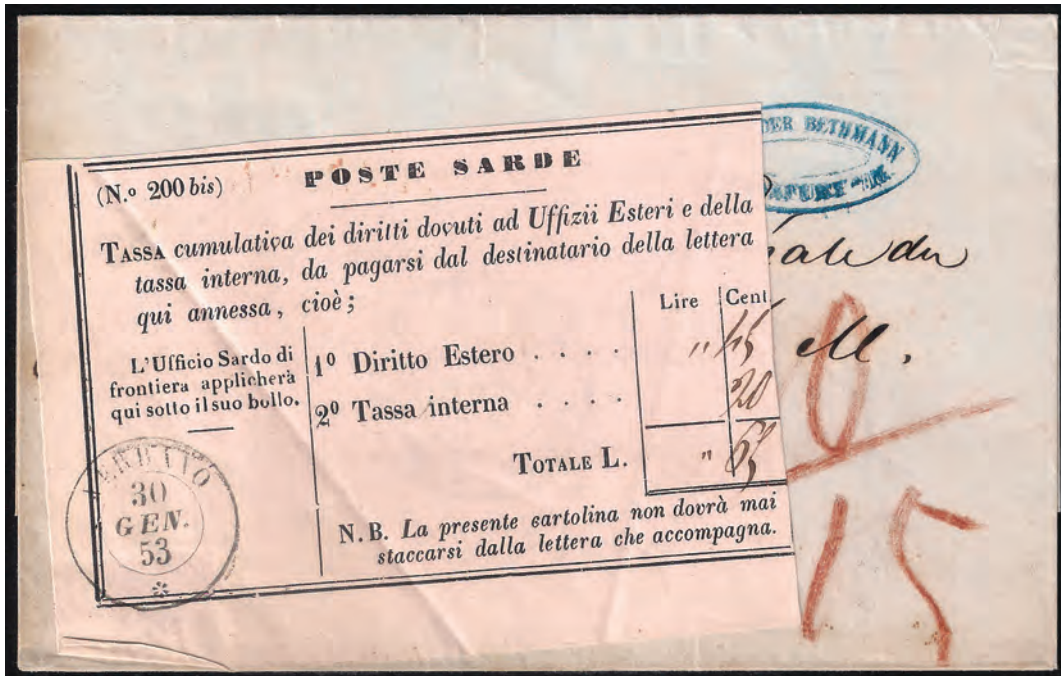 (N.º 200 bis)
POSTE SARDE
TASSA cumulativa dei diritti dovuti ad Uffizii Esteri e della
tassa interna, da pagarsi dal destinatario della lettera
qui annessa, cioè;
Lire Cent.
L'Ufficio Sardo di
frontiera applicherà
qui sotto il suo bollo.
1º Diritto Estero . . . . " 45
2º Tassa interna . . . . 20
TOTALE L. " 65
N.B. La presente cartolina non dovrà mai
staccarsi dalla lettera che accompagna.
VERBANO
30
GEN.
53
DER BETHMANN
M.
15